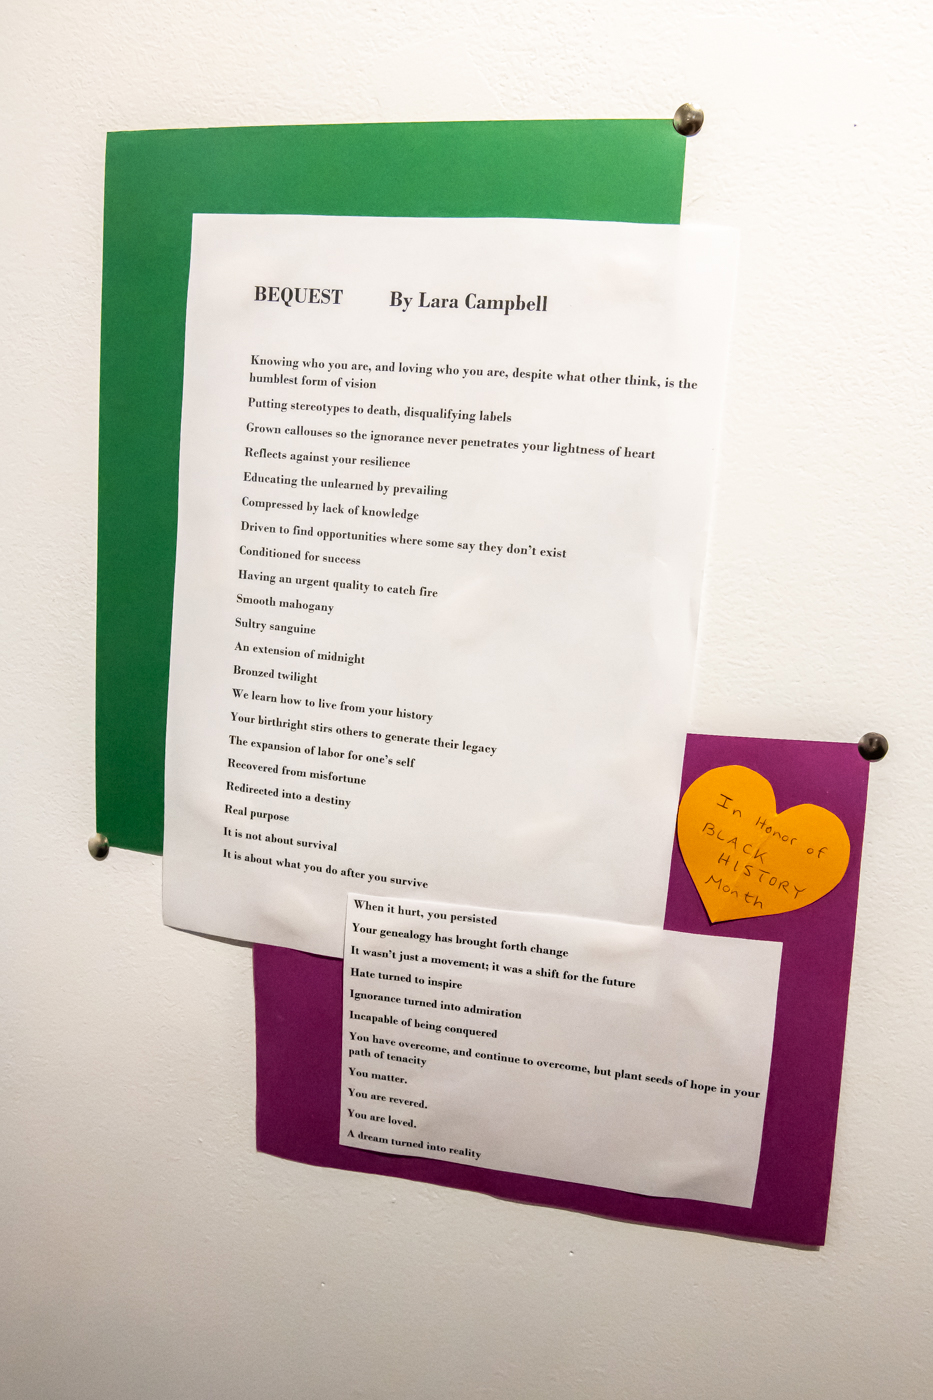 BEQUEST By Lara Campbell
Knowing who you are, and loving who you are, despite what other think, is the
humblest form of vision
Putting stereotypes to death, disqualifying labels
Grown callouses so the ignorance never penetrates your lightness of heart
Reflects against your resilience
Educating the unlearned by prevailing
Compressed by lack of knowledge
Driven to find opportunities where some say they don't exist
Conditioned for success
Having an urgent quality to catch fire
Smooth mahogany
Sultry sanguine
An extension of midnight
Bronzed twilight
We learn how to live from your history
Your birthright stirs others to generate their legacy
The expansion of labor for one's self
Recovered from misfortune
Redirected into a destiny
Real purpose
It is not about survival
It is about what you do after you survive
In Honor of
BLACK
HISTORY
Month
When it hurt, you persisted
Your genealogy has brought forth change
It wasn't just a movement; it was a shift for the future
Hate turned to inspire
Ignorance turned into admiration
Incapable of being conquered
You have overcome, and continue to overcome, but plant seeds of hope in your
path of tenacity
You matter.
You are revered.
You are loved.
A dream turned into reality